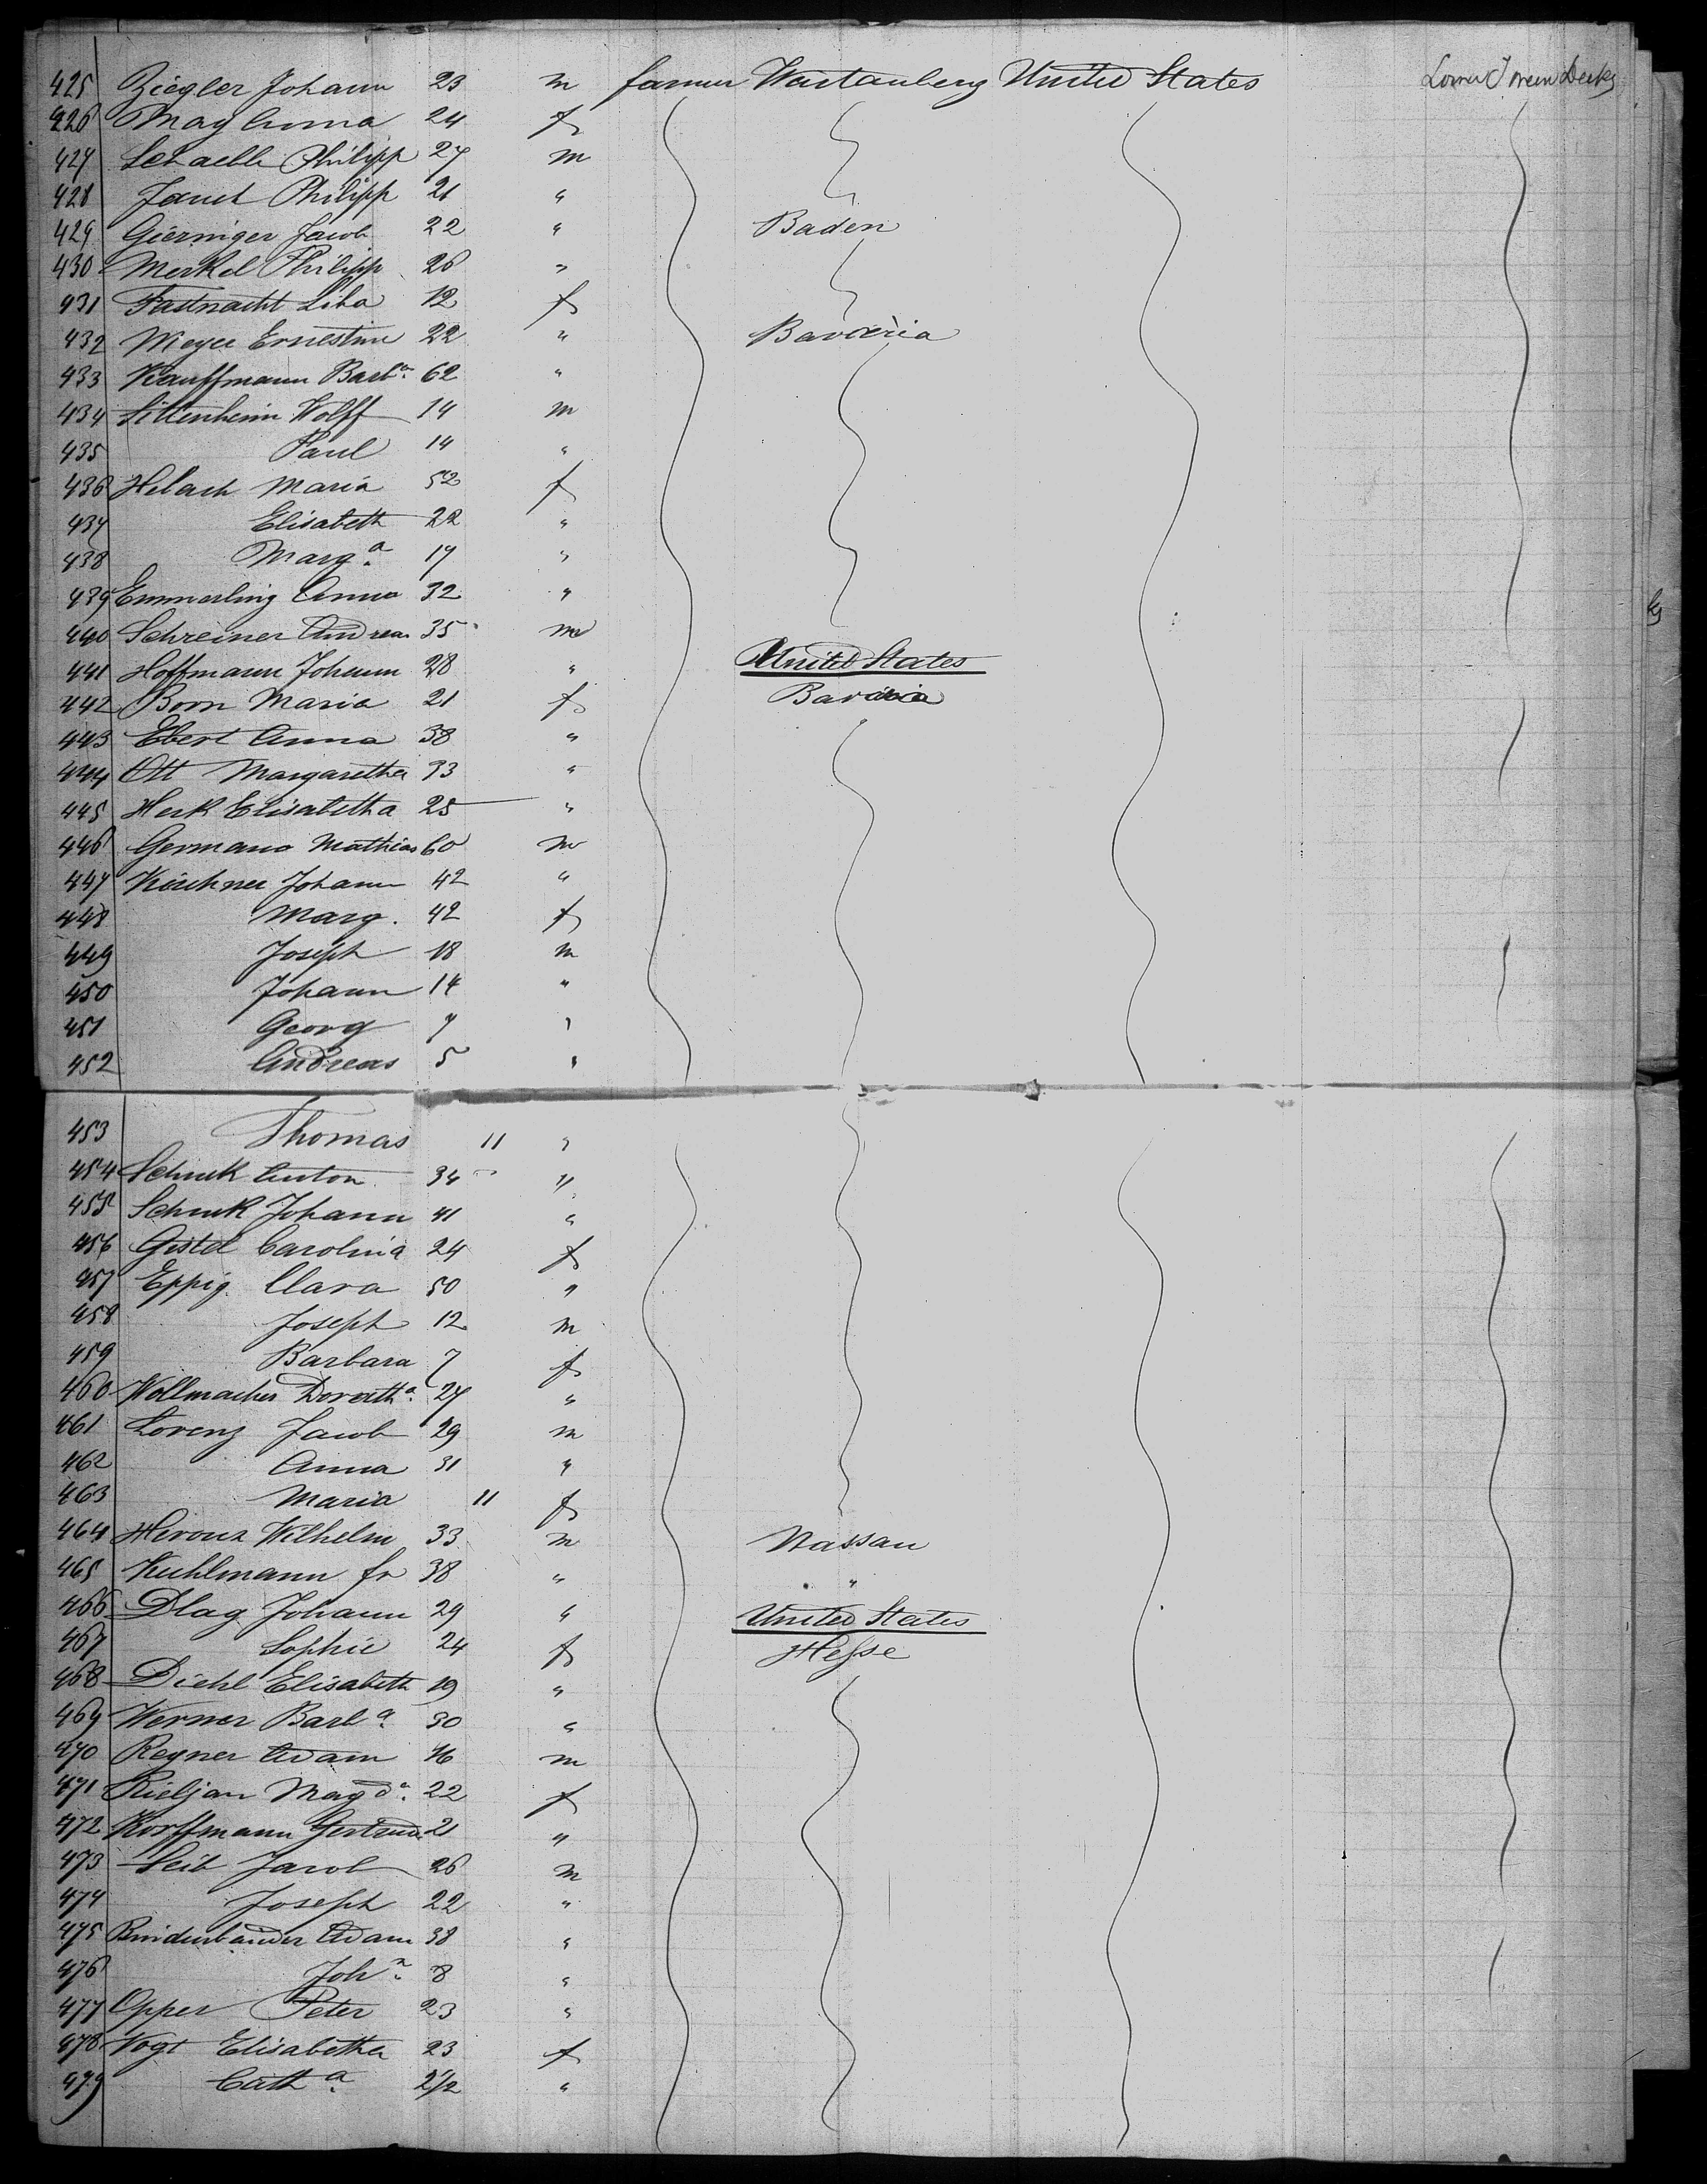 425 Ziegler Johann 23 m farmer Wurtanberg United States Lower Tween Decks
426 May Anna 24 f
427 Schaeble Philipp 27 m
428 Philipp 21 "
429 Gieringer Jacob 22 " Baden
430 Merkel Philipp 26 "
431 Fastnacht Liba 12 f
432 Meyer Ernestine 22 " Bavaria
433 Kauffmann Barba. 62 "
434 Sittenheim Wolff 14 m
435 Paul 14 "
436 Helach Maria 52 f
437 Elisabeth 22 "
438 Marga. 17 "
439 Emmerling Anna 32 "
440 Schreiner Andreas 35 m
441 Hoffmann Johann 28 " United States
442 Born Maria 21 f Bavaria
443 Ebert Anna 38 "
444 Ott Margaretha 33 "
445 Herk Elisabetha 25 "
446 Germano Mathias 60 m
447 Kirchner Johann 42 "
448 Marg. 42 f
449 Joseph 18 m
450 Johann 14 "
451 Georg 7 "
452 Andreas 5 "
453 Thomas 11 "
454 Schuck Anton 34 "
455 Schuck Johann 41 "
456 Gistel Carolina 24 f
457 Eppig. Clara 50 "
458 Joseph 12 m
459 Barbara 7 f
460 Wollmacher Dorotha. 27 "
461 Lorenz Jacob 29 m
462 Anna 31 "
463 Maria 11 f
464 Wilhelm 33 m Nassau
465 Kuhlmann fr 38 " "
466 Dlag Johann 29 " United States
467 Sophie 24 f Hesse
468 Diehl Elisabeth 19 "
469 Werner Barba. 30 "
470 Regner Adam 16 m
471 Rieljan Magda. 22 f
472 Korffmann Gertrude 21 "
473 Seib Jacob 26 m
474 Joseph 22 "
475 Adam 38 "
476 John. 8 "
477 Opper Peter 23 "
478 Vogt Elisabetha 23 f
479 Catha. 2 1/2 "